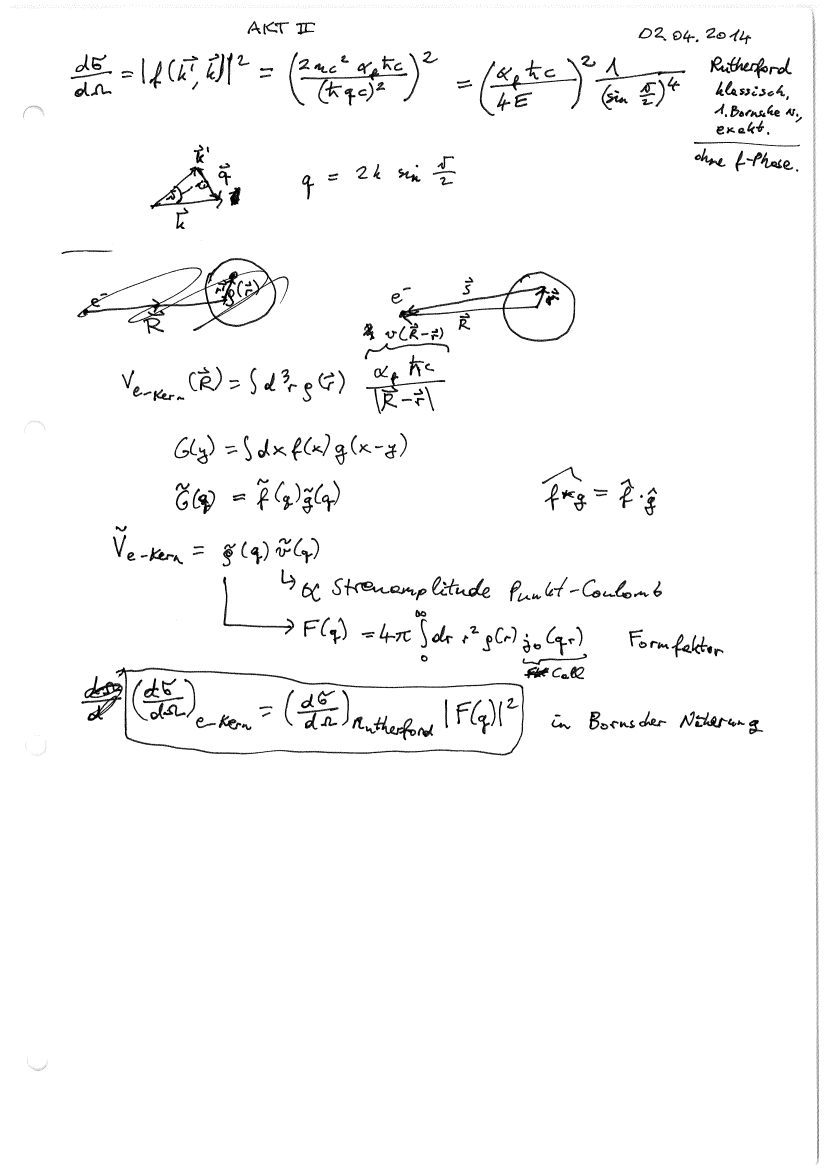 AKT II 02.04.2014
dσ/dΩ = |f(k⃗', k⃗)|² = (2mc² α_f ħc / (ħqc)²)² = (α_f ħc / 4E)² 1/(sin ϑ/2)⁴
Rutherford
klassisch,
1. Bornsche N.,
exakt.
ohne f-Phase.
k⃗' q⃗ ϑ k⃗
q = 2k sin ϑ/2
e⁻ R⃗ ρ(r⃗)
e⁻ s⃗ R⃗ r⃗
v(R⃗-r⃗)
V_e-Kern (R⃗) = ∫d³r ρ(r⃗) α_f ħc / |R⃗-r⃗|
G(y) = ∫dx f(x) g(x-y)
G̃(q) = f̃(q) g̃(q) f*g^ = f̂ · ĝ
Ṽ_e-Kern = ρ̃(q) ṽ(q)
↳ ∝ Streuamplitude Punkt-Coulomb
→ F(q) = 4π ∫₀^∞ dr r² ρ(r) j₀(qr) Formfaktor
(dσ/dΩ)_e-Kern = (dσ/dΩ)_Rutherford |F(q)|² in Bornscher Näherung